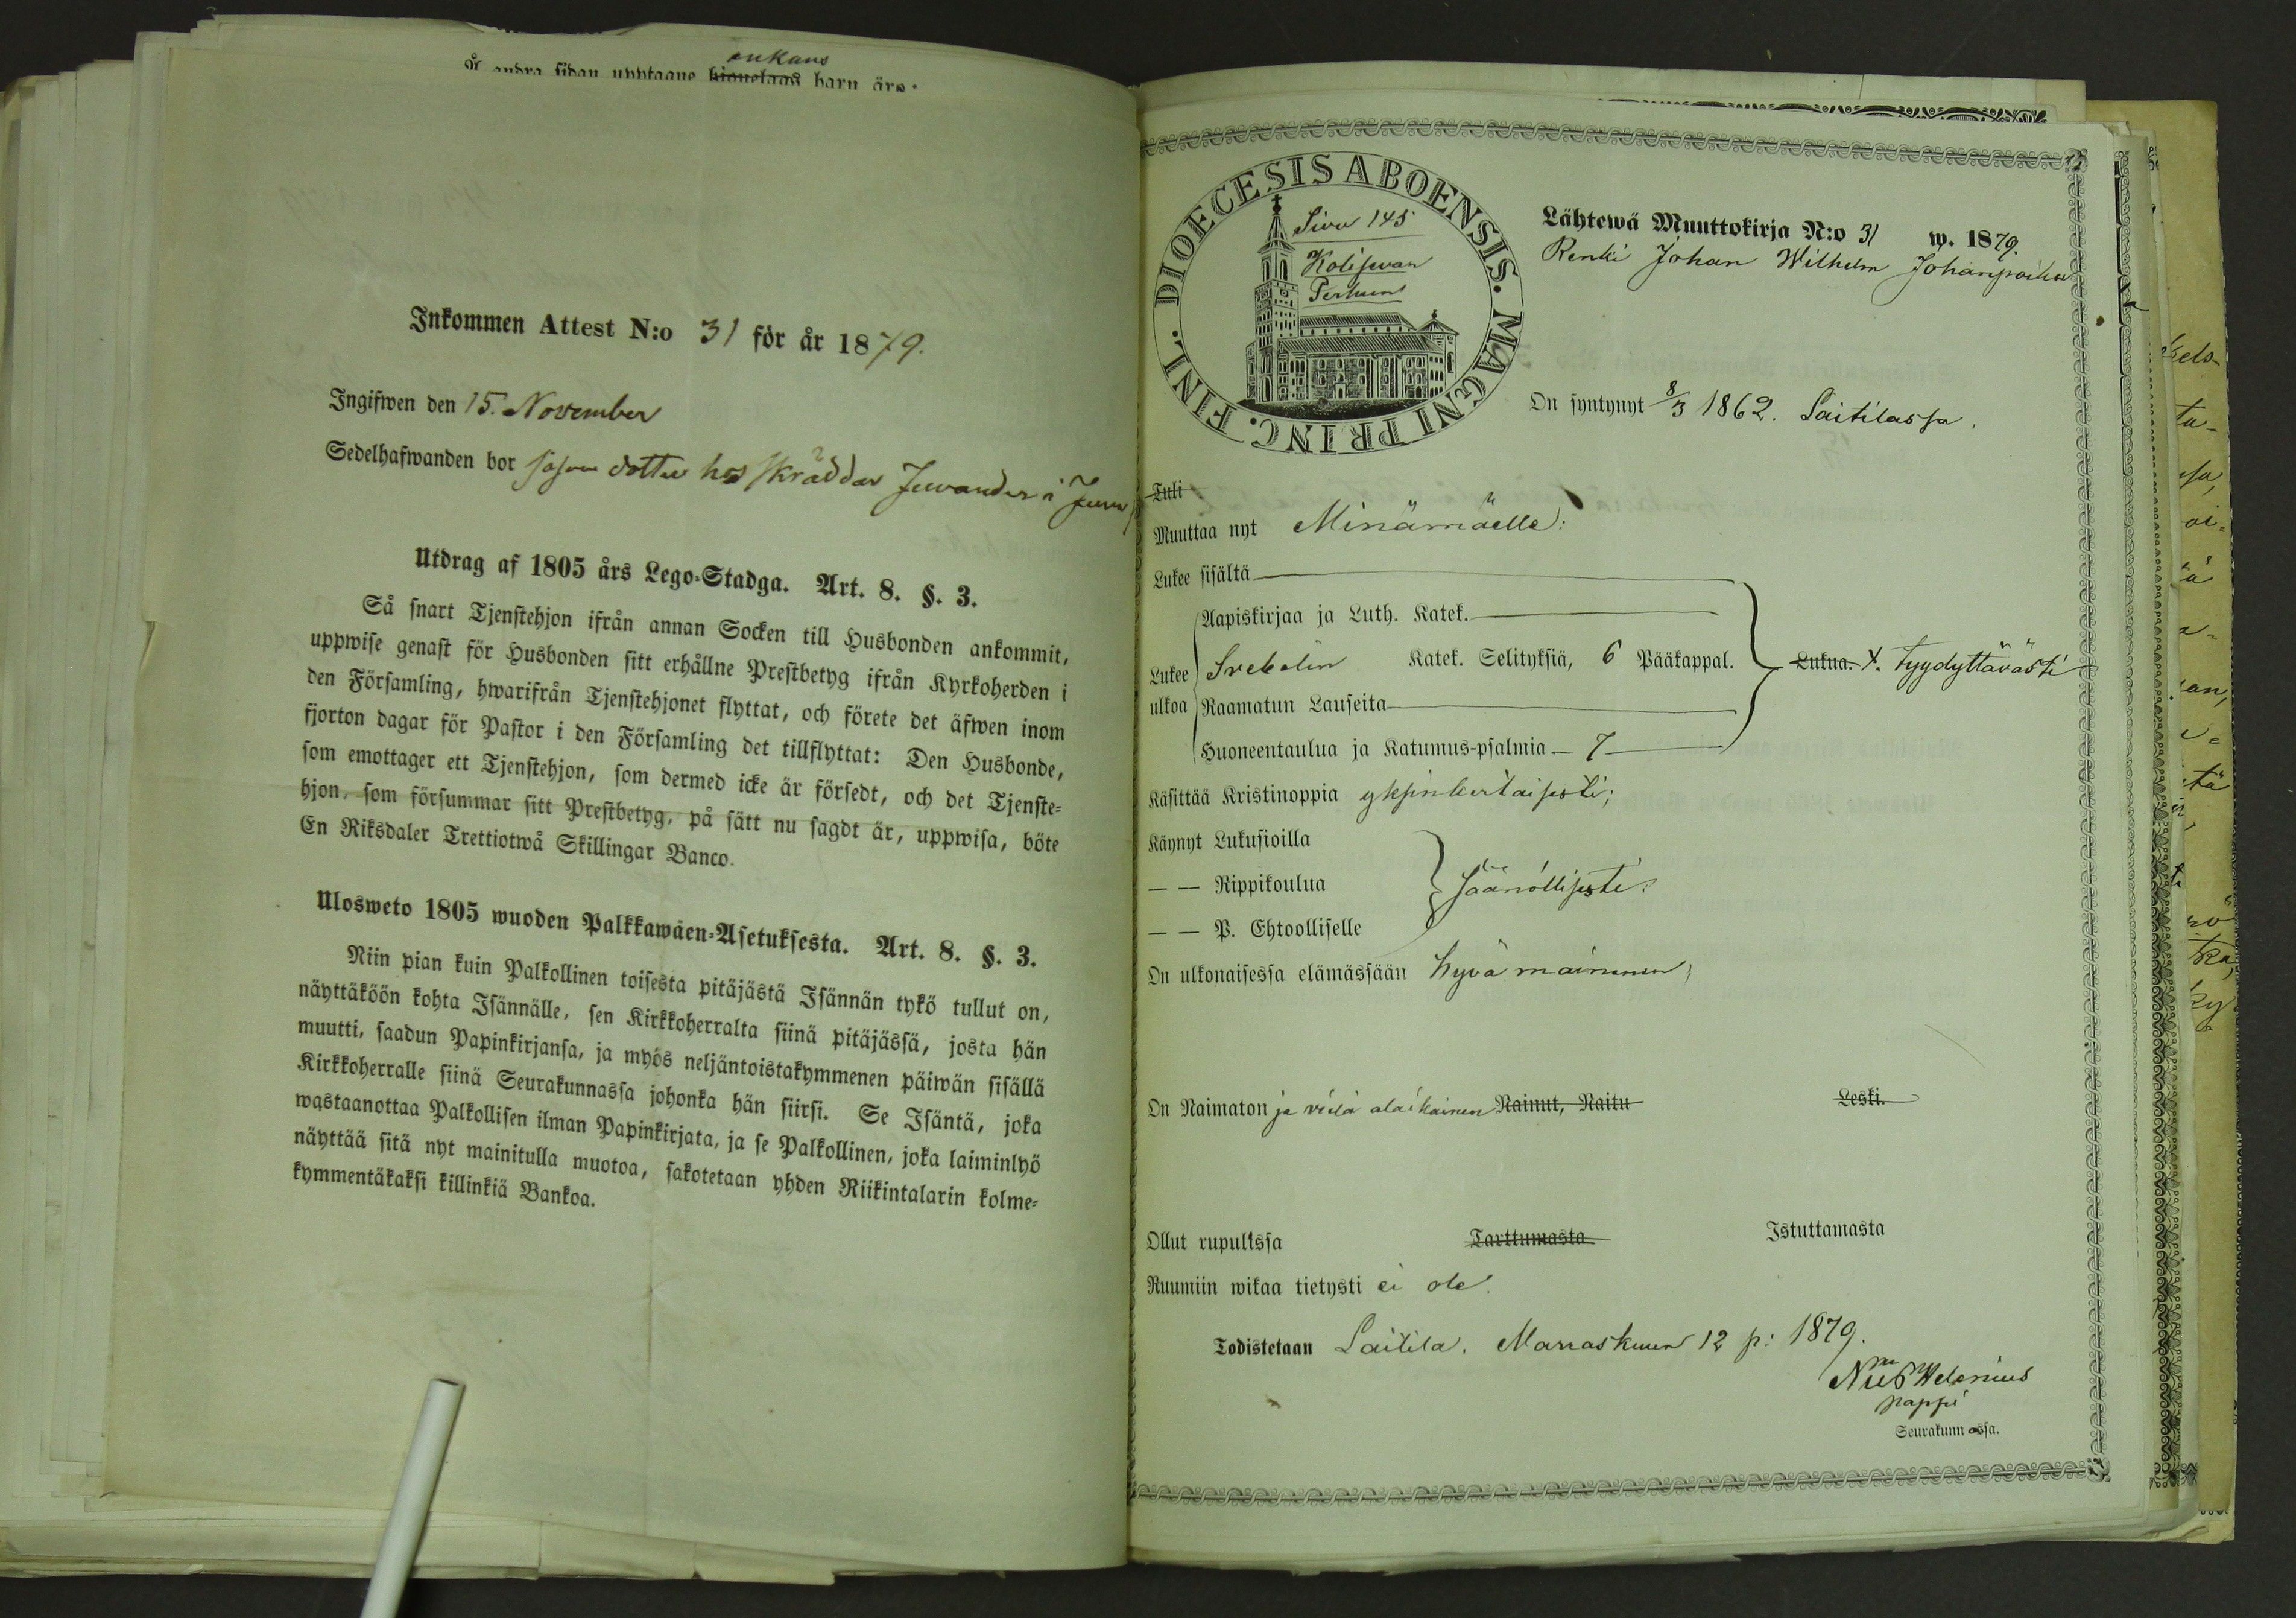 enkans
Å andra sidan upptagne hionelaas barn äro:
Inkommen Attest N:o 31 för år 1879.
Ingifwen den 15. November
Sedelhafwanden bor såsom dotter hos skräddar Juvander i
Utdrag af 1805 års Lego-Stadga. Art. 8. §. 3.
Så snart Tjenstehjon ifrån annan Socken till Husbonden ankommit,
uppwise genast för Husbonden sitt erhållne Prestbetyg ifrån Kyrkoherden i
den Församling, hwarifrån Tjenstehjonet flyttat, och förete det äfwen inom
fjorton dagar för Pastor i den Församling det tillflyttat: Den Husbonde,
som emottager ett Tjenstehjon, som dermed icke är försedt, och det Tjenste-
hjon, som försummar sitt Prestbetyg, på sätt nu sagdt är, uppwisa, böte
En Riksdaler Trettiotwå Skillingar Banco.
Ulosweto 1805 wuoden Palkkawäen-Asetuksesta. Art. 8. §. 3.
Niin pian kuin Palkollinen toisesta pitäjästä Isännän tykö tullut on,
näyttäköön kohta Isännälle, sen Kirkkoherralta siinä pitäjässä, josta hän
muutti, saadun Papinkirjansa, ja myös neljäntoistakymmenen päiwän sisällä
Kirkkoherralle siinä Seurakunnassa johonka hän siirsi. Se Isäntä, joka
wastaanottaa Palkollisen ilman Papinkirjata, ja se Palkollinen, joka laiminlyö
näyttää sitä nyt mainitulla muotoa, sakotetaan yhden Riikintalarin kolme-
kymmentäkaksi killinkiä Bankoa.
DIOECESIS ABOENSIS. MAGNI PRINC. FINL.
Sivu 145
Kolisevan
Perheen
Lähtewä Muuttokirja N:o 31 w. 1879.
Renki Johan Wilhelm Johanpoika
On syntynyt 8/3 1862. Laitilassa.
Tuli
Muuttaa nyt Minämäelle:
Lukee sisältä
Aapiskirjaa ja Luth. Katek.
Lukee ulkoa Svebelin Katek. Selityksiä, 6 Pääkappal. Lukua. 4. tyydyttävästi
Raamatun Lauseita
Huoneentaulua ja Katumus-psalmia 7
Käsittää Kristinoppia yksinkertaisesti;
Käynyt Lukusioilla
— — Rippikoulua säännöllisesti:
— — P. Ehtoolliselle
On ulkonaisessa elämässään hyvä maininen;
On Naimaton ja vielä alaikäinen Nainut, Naitu Leski.
Ollut rupulissa Tarttumasta Istuttamasta
Ruumiin wikaa tietysti ei ole.
Todistetaan Laitila. Marraskuun 12 p: 1879.
Welenius
pappi
Seurakunnassa.